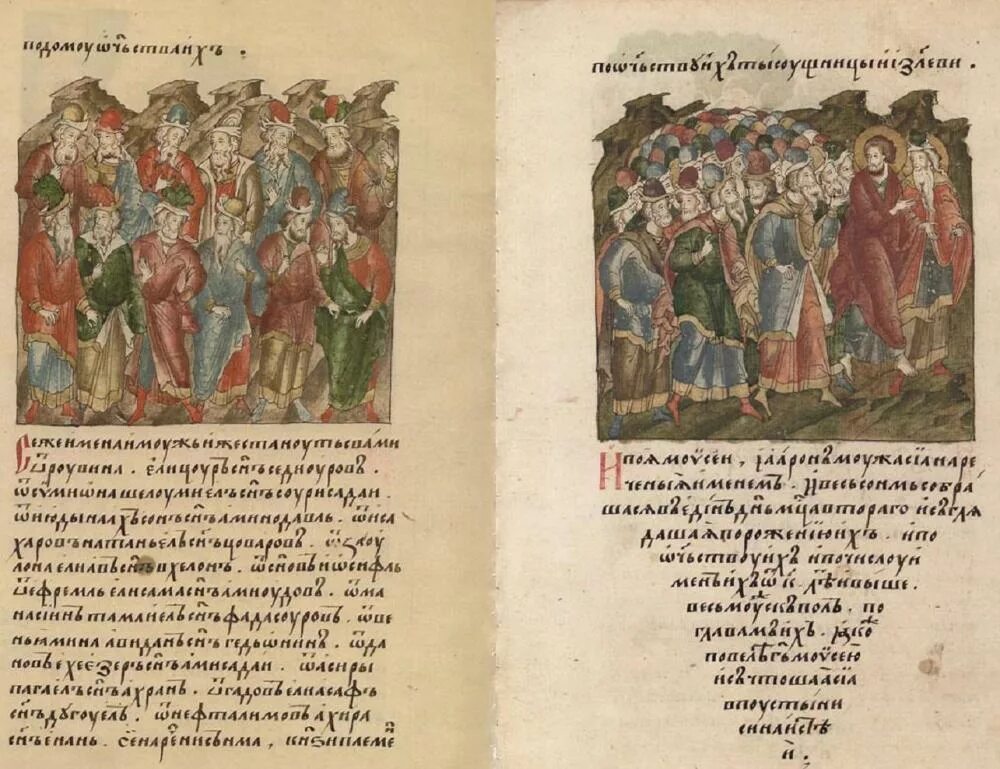 подомоуѿч҃ьстваи́хъ .
Сежеименаи́моужьи́жестаноутьсвами
ѿроувима . е́лицоуръсн҃ъседиоуровъ .
ѿсѷмио́нашелоумиелъсн҃ъсоурисадаи .
ѿию́дынаа́съсонъсн҃ъа́минодавль . ѿи́са
харовънатанаи́лъсн҃ъцоваровъ . ѿзаоу
лонае́лиа́въсн҃ъхелонь . ѿсн҃овъио́сифль
ѿефремльелисамасн҃ъа́миоудовъ . ѿма
насиинъгамалиелъсн҃ъфадасоуровъ . ѿве
ньꙗминаа́виданъсн҃ъгедьѡ́нинъ . ѿда
новъа́хее́зеръсн҃ъа́мисадаи . ѿа́сиры
пагаелъсн҃ъа́хранъ . ѿгадовъе́лиасафъ
сн҃ъдугоуелъ . ѿнефталимовъа́хира
сн҃ъе́нань . сеинаречениисонма , кнѕ҃иплеме
поѿч҃ьствуи́хътысоущницыии́злеви .
Ипоꙗ́моѷсеи , и҆а́а́ронъмоужасиꙗ́наре
ченыꙗ́именемъ . и҆весьсонмьсобра
шасѧвъе́динъдн҃ьмц҃автораго исъглѧ
дашаꙗ́порожениюи́хъ . и́по
ѿч҃ьствоуи́хъ ипочислоуи
менъи́хъѿк҃ лѣ́тивыше .
весьмоу́скъполъ . по
главамъи́хъ . ꙗ́коже
повелѣгь҃моѷсею
исъчтошаꙗ́асиꙗ
впоустыни
синаистѣ
и́ .